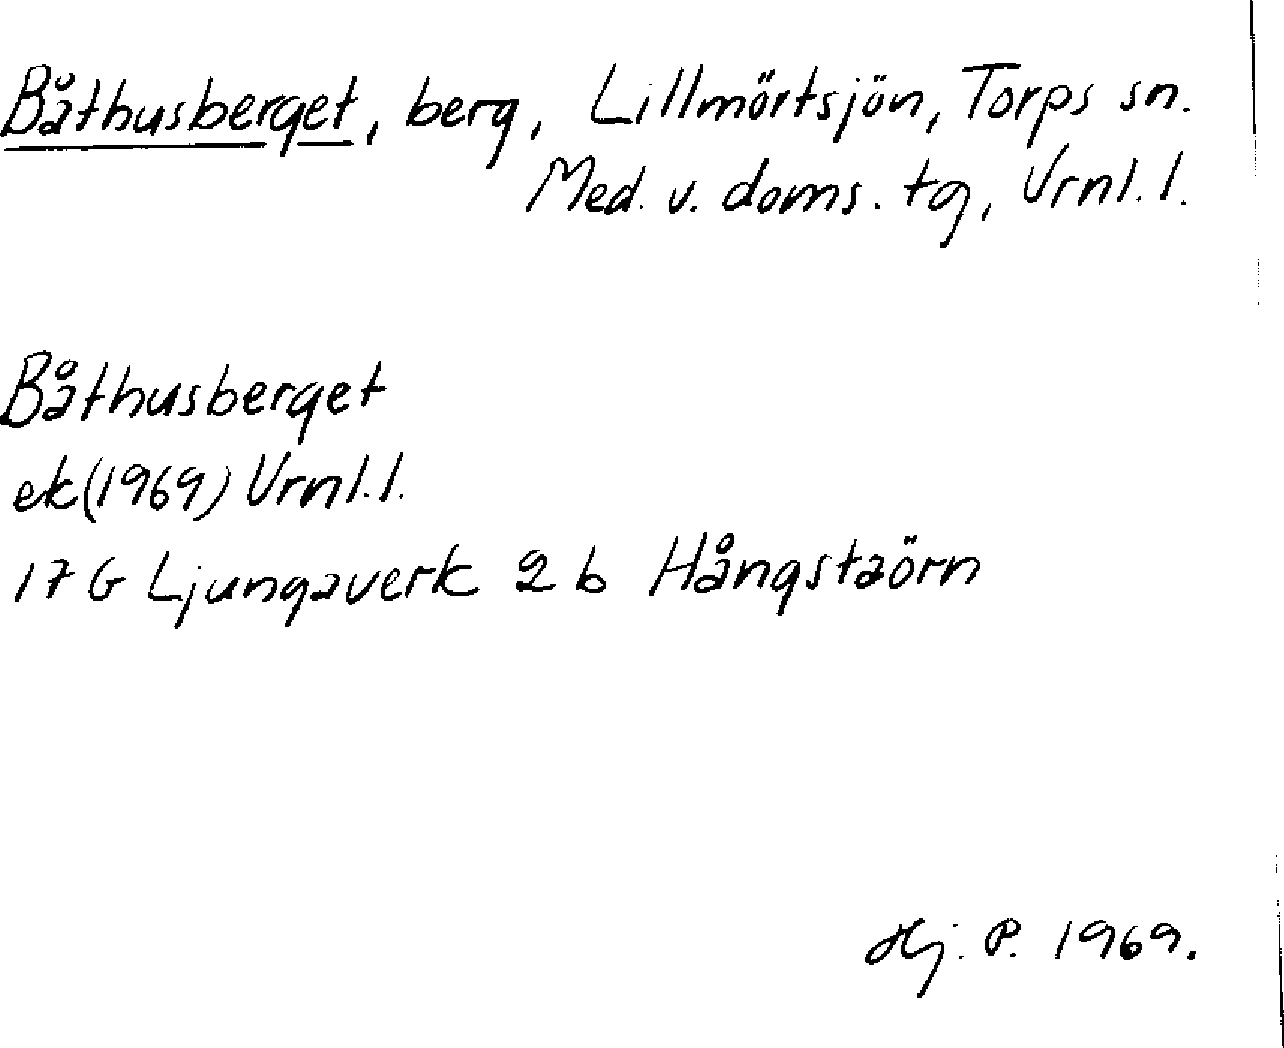 Båthusberget, berg, Lillmörtsjön, Torps sn.
Med. v. doms. tg, Vrnl. l.
Båthusberget
ek(1969) Vrnl. l.
17 G Ljungaverk 2 b Hångstaörn
Hj. P. 1969.